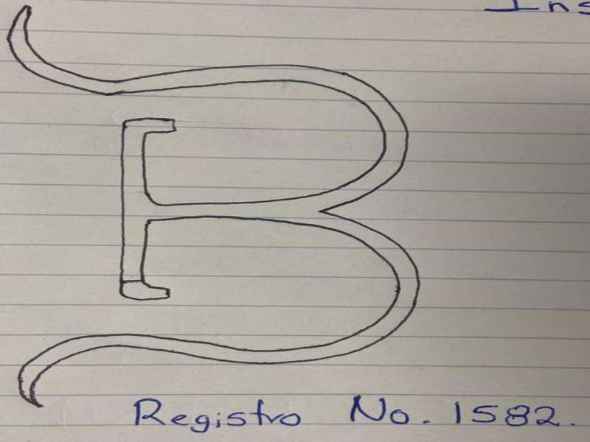 Ins
B
Registro No. 1582.